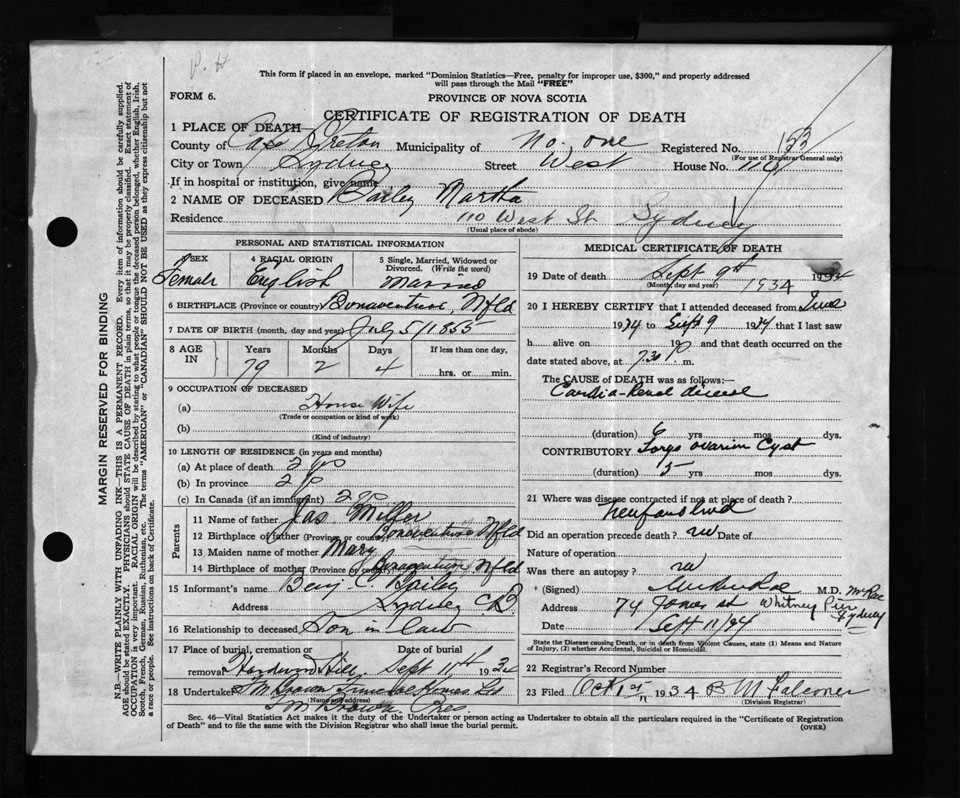 P. H
This form if placed in an envelope, marked "Dominion Statistics—Free, penalty for improper use, $300," and properly addressed
will pass through the Mail "FREE"
FORM 6.
PROVINCE OF NOVA SCOTIA
CERTIFICATE OF REGISTRATION OF DEATH
1 PLACE OF DEATH—
County of Cape Breton Municipality of No. one Registered No. 153
(For use of Registrar General only)
City or Town Sydney Street West House No. 110
If in hospital or institution, give name
2 NAME OF DECEASED Bailey Martha
Residence 110 West St. Sydney
(Usual place of abode)
PERSONAL AND STATISTICAL INFORMATION
3 SEX 4 RACIAL ORIGIN 5 Single, Married, Widowed or Divorced. (Write the word)
Female English Married
6 BIRTHPLACE (Province or country) Bonaventure, Nfld
7 DATE OF BIRTH (month, day and year) July 5/1855
8 AGE IN Years Months Days If less than one day,
79 2 4 hrs. or min.
9 OCCUPATION OF DECEASED
(a) House Wife
(Trade or occupation or kind of work)
(b)
(Kind of industry)
10 LENGTH OF RESIDENCE (in years and months)
(a) At place of death 2 yrs
(b) In province 2 yr
(c) In Canada (if an immigrant) 2 yrs
Parents
11 Name of father Jas. Miller
12 Birthplace of father (Province or country) Bonaventure Nfld
13 Maiden name of mother Mary
14 Birthplace of mother (Province or country) Bonaventure Nfld
15 Informant's name Benj. C. Bailey
Address Sydney C.B.
16 Relationship to deceased Son in law
17 Place of burial, cremation or removal Hardwood Hill Date of burial Sept 11th 193
18 Undertaker
(Name and address)
T M Brown Pres.
MEDICAL CERTIFICATE OF DEATH
19 Date of death Sept 9th 1934
(Month, day and year) 1934
20 I HEREBY CERTIFY that I attended deceased from June
1934 to Sept 9 1934 that I last saw
h alive on 19 and that death occurred on the
date stated above, at 7.30 P. m.
The CAUSE of DEATH was as follows:—
Cardio-Renal disease
(duration) 6 yrs mos dys.
CONTRIBUTORY Large ovarian Cyst
(duration) 15 yrs mos dys.
21 Where was disease contracted if not at place of death?
Newfoundland
Did an operation precede death? no Date of
Nature of operation
Was there an autopsy? no
* (Signed) M.D. McRae
Address 74 Jones st Whitney Pier Sydney
Date Sept 11/34
State the Disease causing Death, or in death from Violent Causes, state (1) Means and Nature
of Injury, (2) whether Accidental, Suicidal or Homicidal.
22 Registrar's Record Number
23 Filed Oct 1st 1934 B M Falconer
(Division Registrar)
Sec. 46—Vital Statistics Act makes it the duty of the Undertaker or person acting as Undertaker to obtain all the particulars required in the "Certificate of Registration
of Death" and to file the same with the Division Registrar who shall issue the burial permit.
(OVER)
MARGIN RESERVED FOR BINDING
N.B.—WRITE PLAINLY WITH UNFADING INK—THIS IS A PERMANENT RECORD. Every item of information should be carefully supplied.
AGE should be stated EXACTLY. PHYSICIANS should STATE CAUSE OF DEATH in plain terms, so that it may be properly classified. Exact statement of
OCCUPATION is very important. RACIAL ORIGIN will be described by stating to what people or tongue the deceased person belonged, whether English, Irish,
Scotch, French, German, Russian, Ruthenian, etc. The terms "AMERICAN" or "CANADIAN" SHOULD NOT BE USED as they express citizenship but not
a race or people. See instructions on back of Certificate.